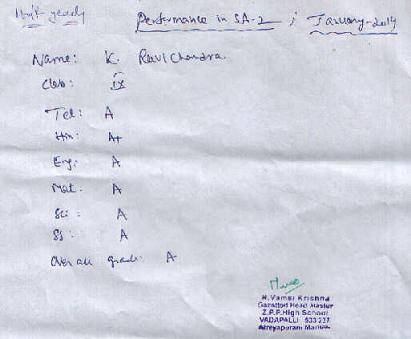 Half-yearly
Performance in SA-2 ; January-2014
Name: K. Ravi Chandra.
Class: IX
Tel: A
Hin: A+
Eng: A
Mat: A
Sci: A
SS: A
Over all grade: A
N.Vamsi Krishna
Gazetted Head Master
Z.P.P.High School
VADAPALLI 533 237
Atreyapuram Mandal